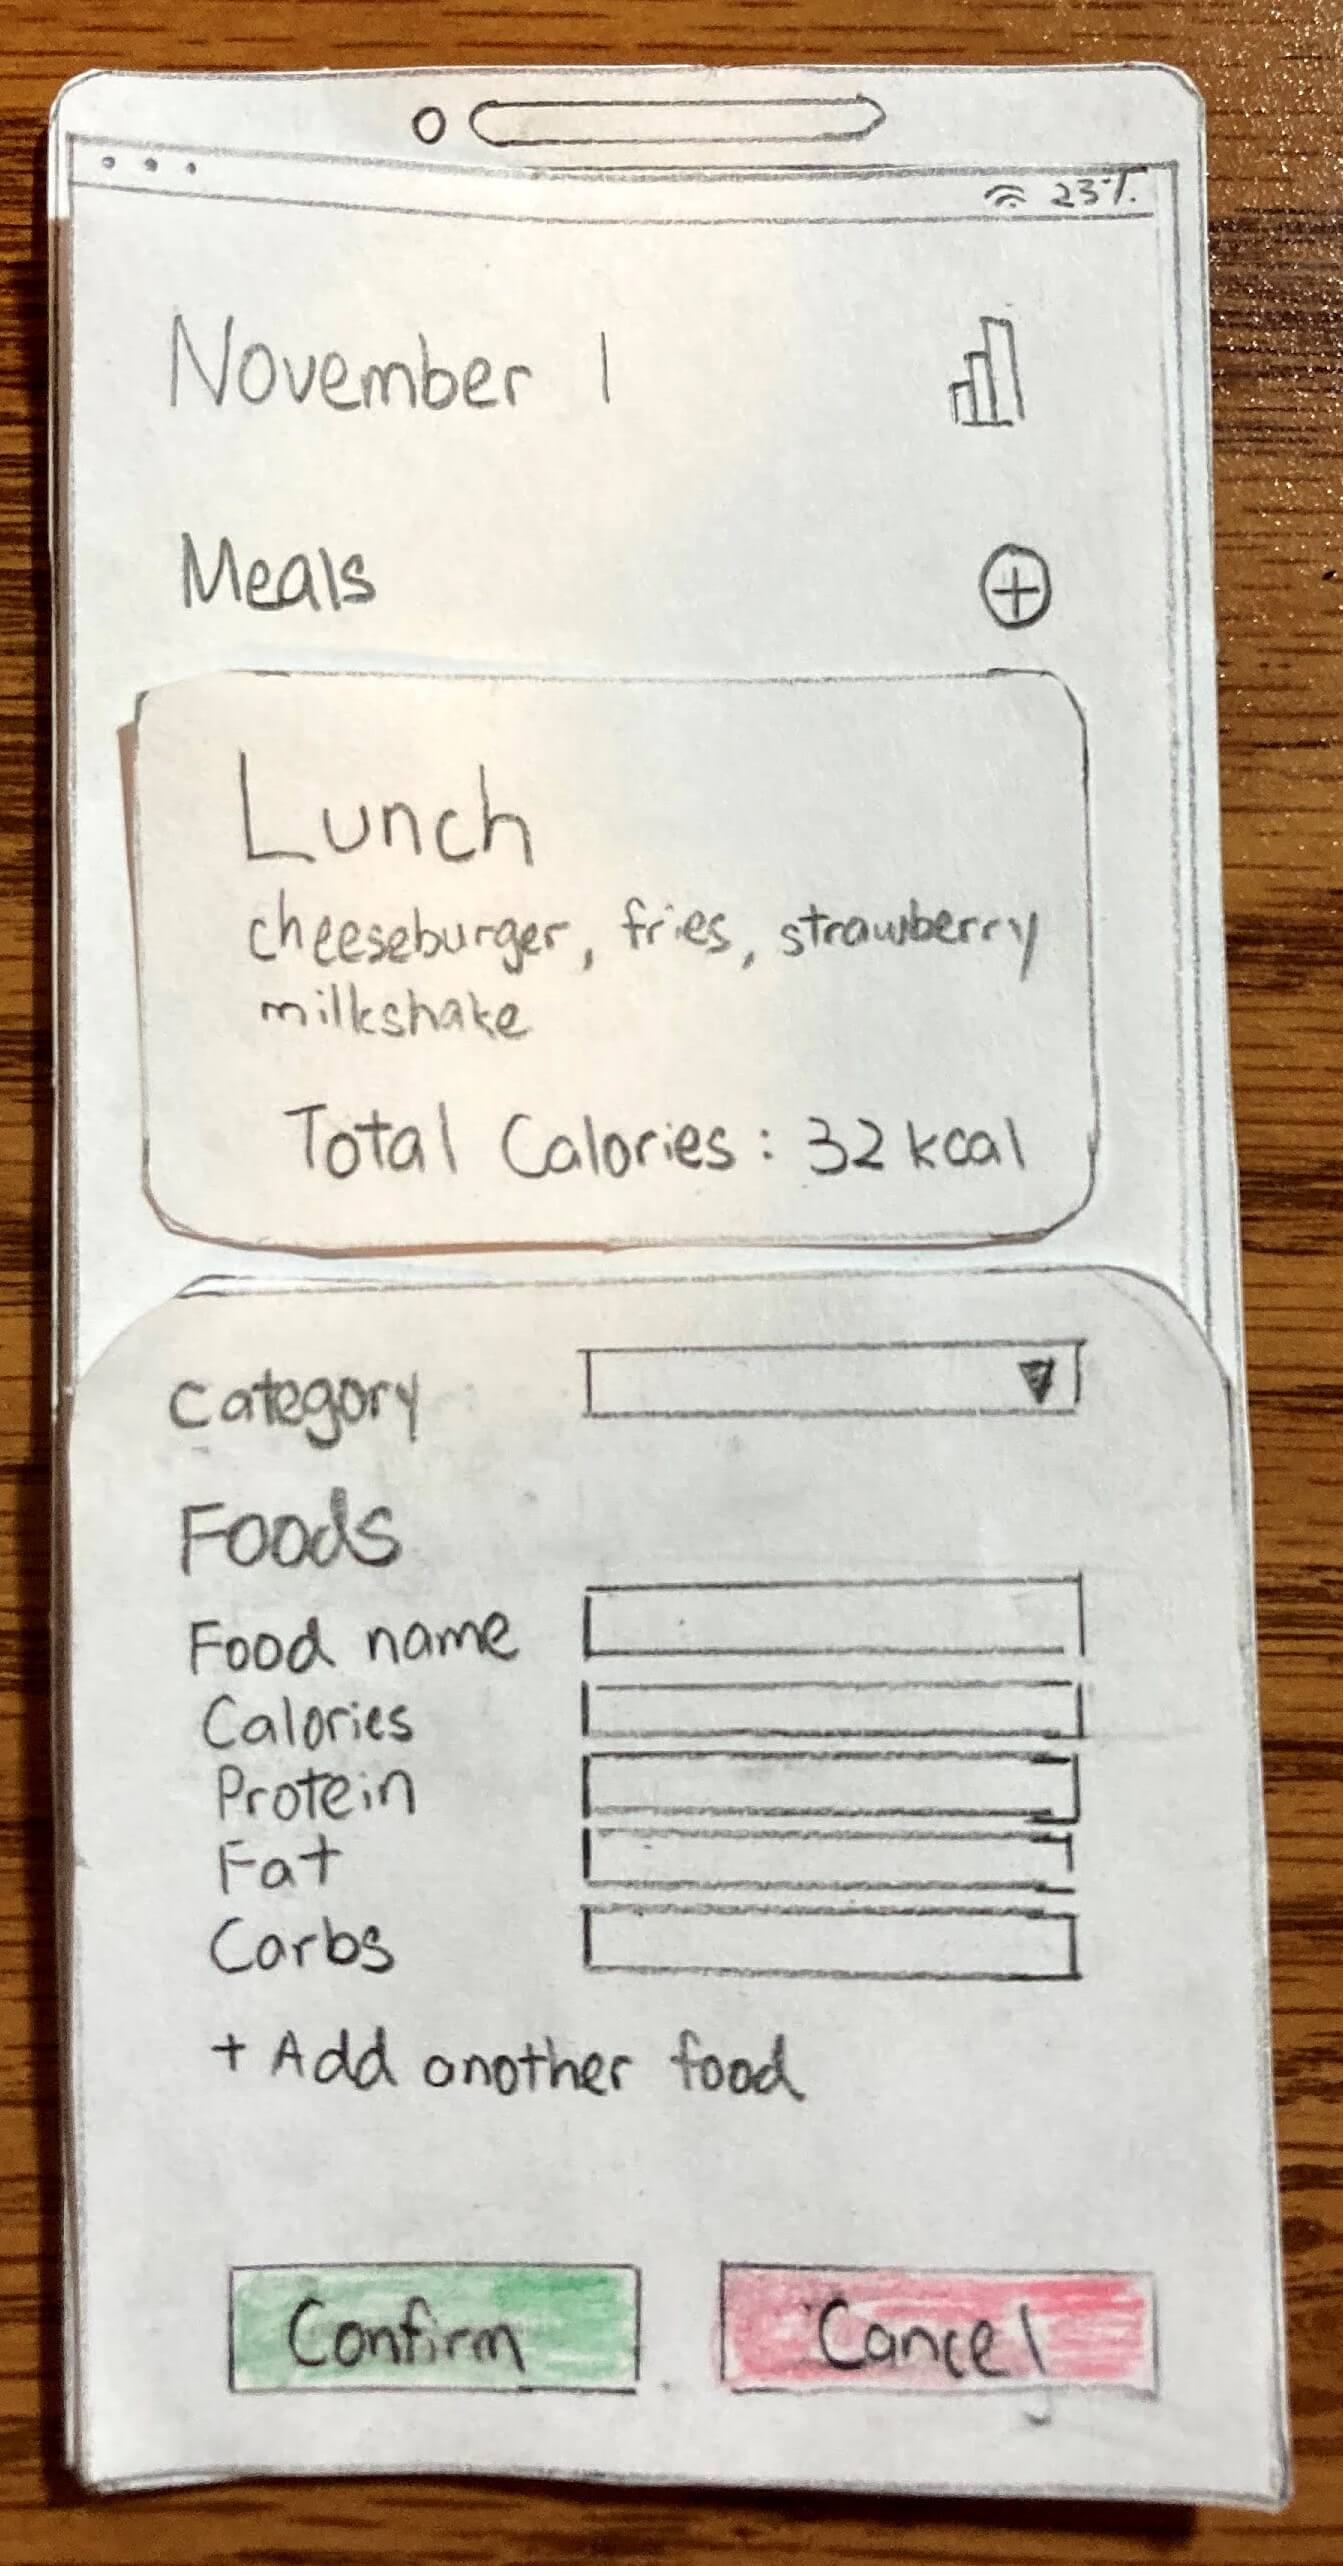 23%
November 1
Meals
Lunch
cheeseburger, fries, strawberry
milkshake
Total Calories: 32 kcal
Category
Foods
Food name
Calories
Protein
Fat
Carbs
+ Add another food
Confirm
Cancel